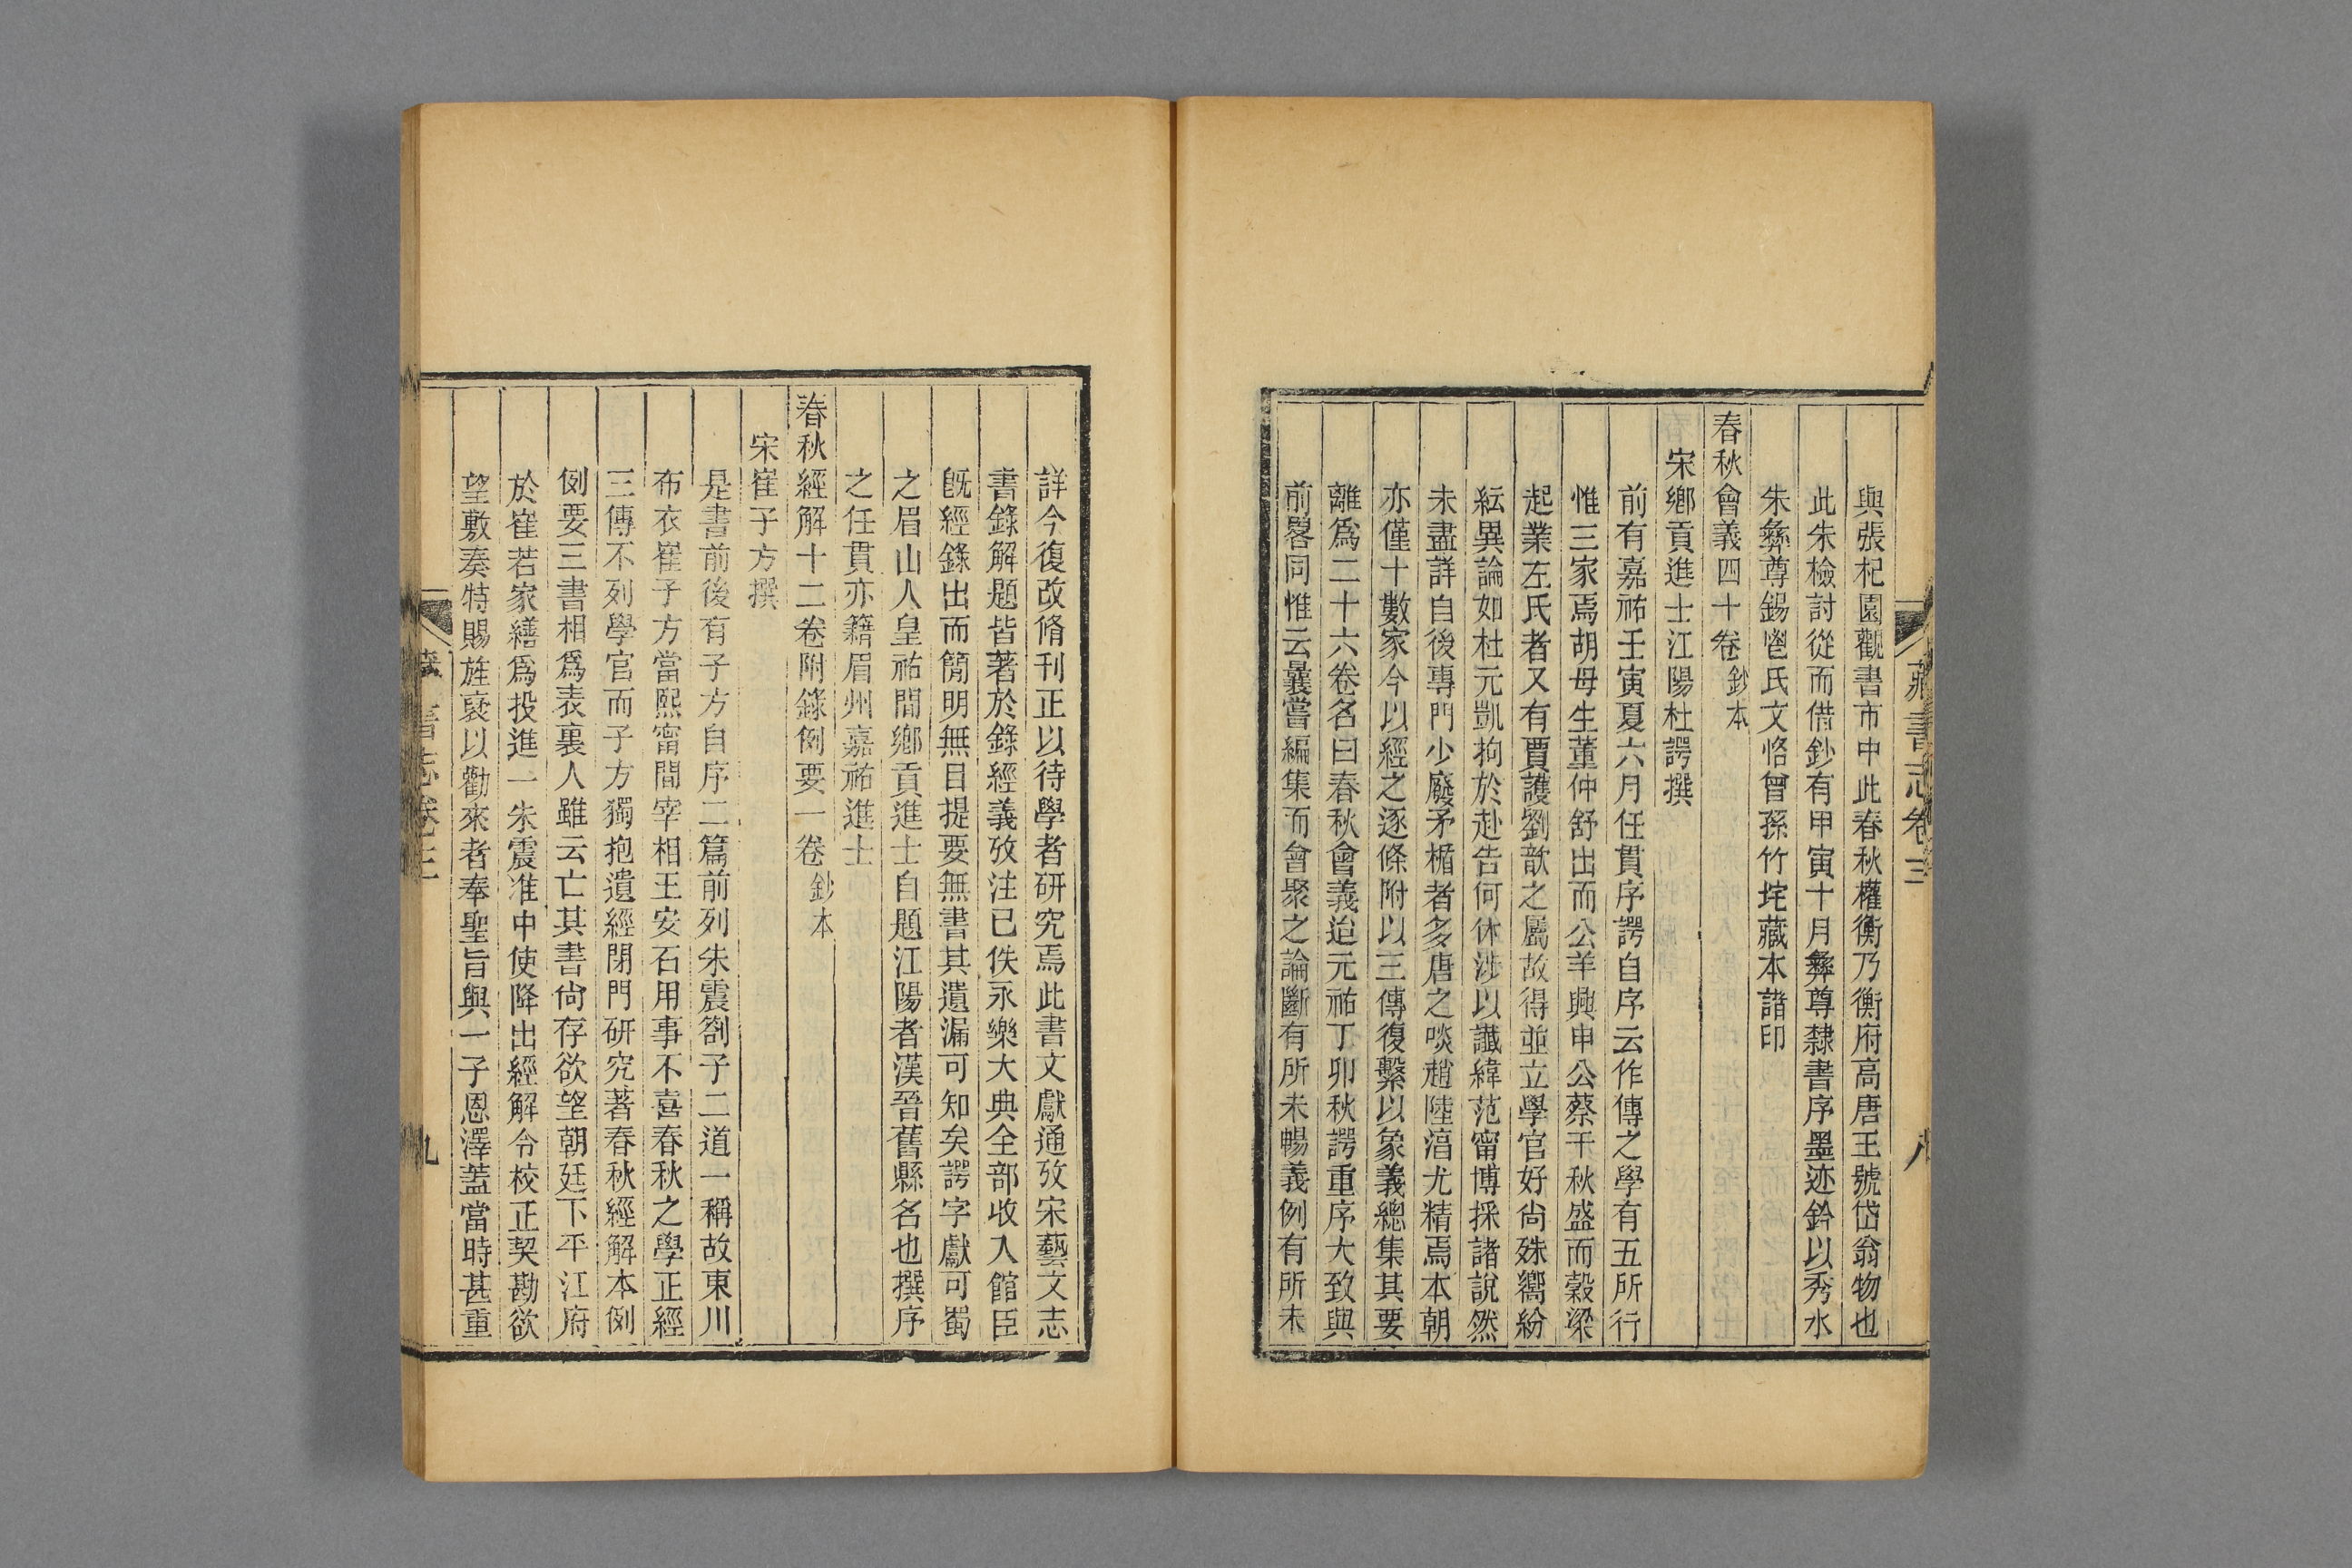 藏書志卷三
八
與張杞園觀書市中此春秋權衡乃衡府高唐王號岱翁物也
此朱檢討從而借鈔有甲寅十月彝尊隸書序墨迹鈐以秀水
朱彝尊錫鬯氏文恪曾孫竹垞藏本諸印
春秋會義四十卷鈔本
宋鄉貢進士江陽杜諤撰
前有嘉祐壬寅夏六月任貫序諤自序云作傳之學有五所行
惟三家焉胡母生董仲舒出而公羊興申公蔡千秋盛而穀梁
起業左氏者又有賈護劉歆之屬故得並立學官好尙殊嚮紛
紜異論如杜元凱拘於赴告何休涉以讖緯范甯博採諸說然
未盡詳自後專門少廢矛楯者多唐之啖趙陸淳尤精焉本朝
亦僅十數家今以經之逐條附以三傳復繫以象義總集其要
離爲二十六卷名曰春秋會義迨元祐丁卯秋諤重序大致與
前畧同惟云曩嘗編集而會聚之論斷有所未暢義例有所未
詳今復改脩刊正以待學者研究焉此書文獻通攷宋藝文志
書錄解題皆著於錄經義攷注已佚永樂大典全部收入館臣
旣經錄出而簡明無目提要無書其遺漏可知矣諤字獻可蜀
之眉山人皇祐間鄉貢進士自題江陽者漢晉舊縣名也撰序
之任貫亦籍眉州嘉祐進士
春秋經解十二卷附錄例要一卷鈔本
宋崔子方撰
是書前後有子方自序二篇前列朱震劄子二道一稱故東川
布衣崔子方當熙甯間宰相王安石用事不喜春秋之學正經
三傳不列學官而子方獨抱遺經閉門研究著春秋經解本例
例要三書相爲表裏人雖云亡其書尙存欲望朝廷下平江府
於崔若家繕爲投進一朱震准中使降出經解令校正契勘欲
望敷奏特賜旌褒以勸來者奉聖旨與一子恩澤蓋當時甚重
書志卷三
九